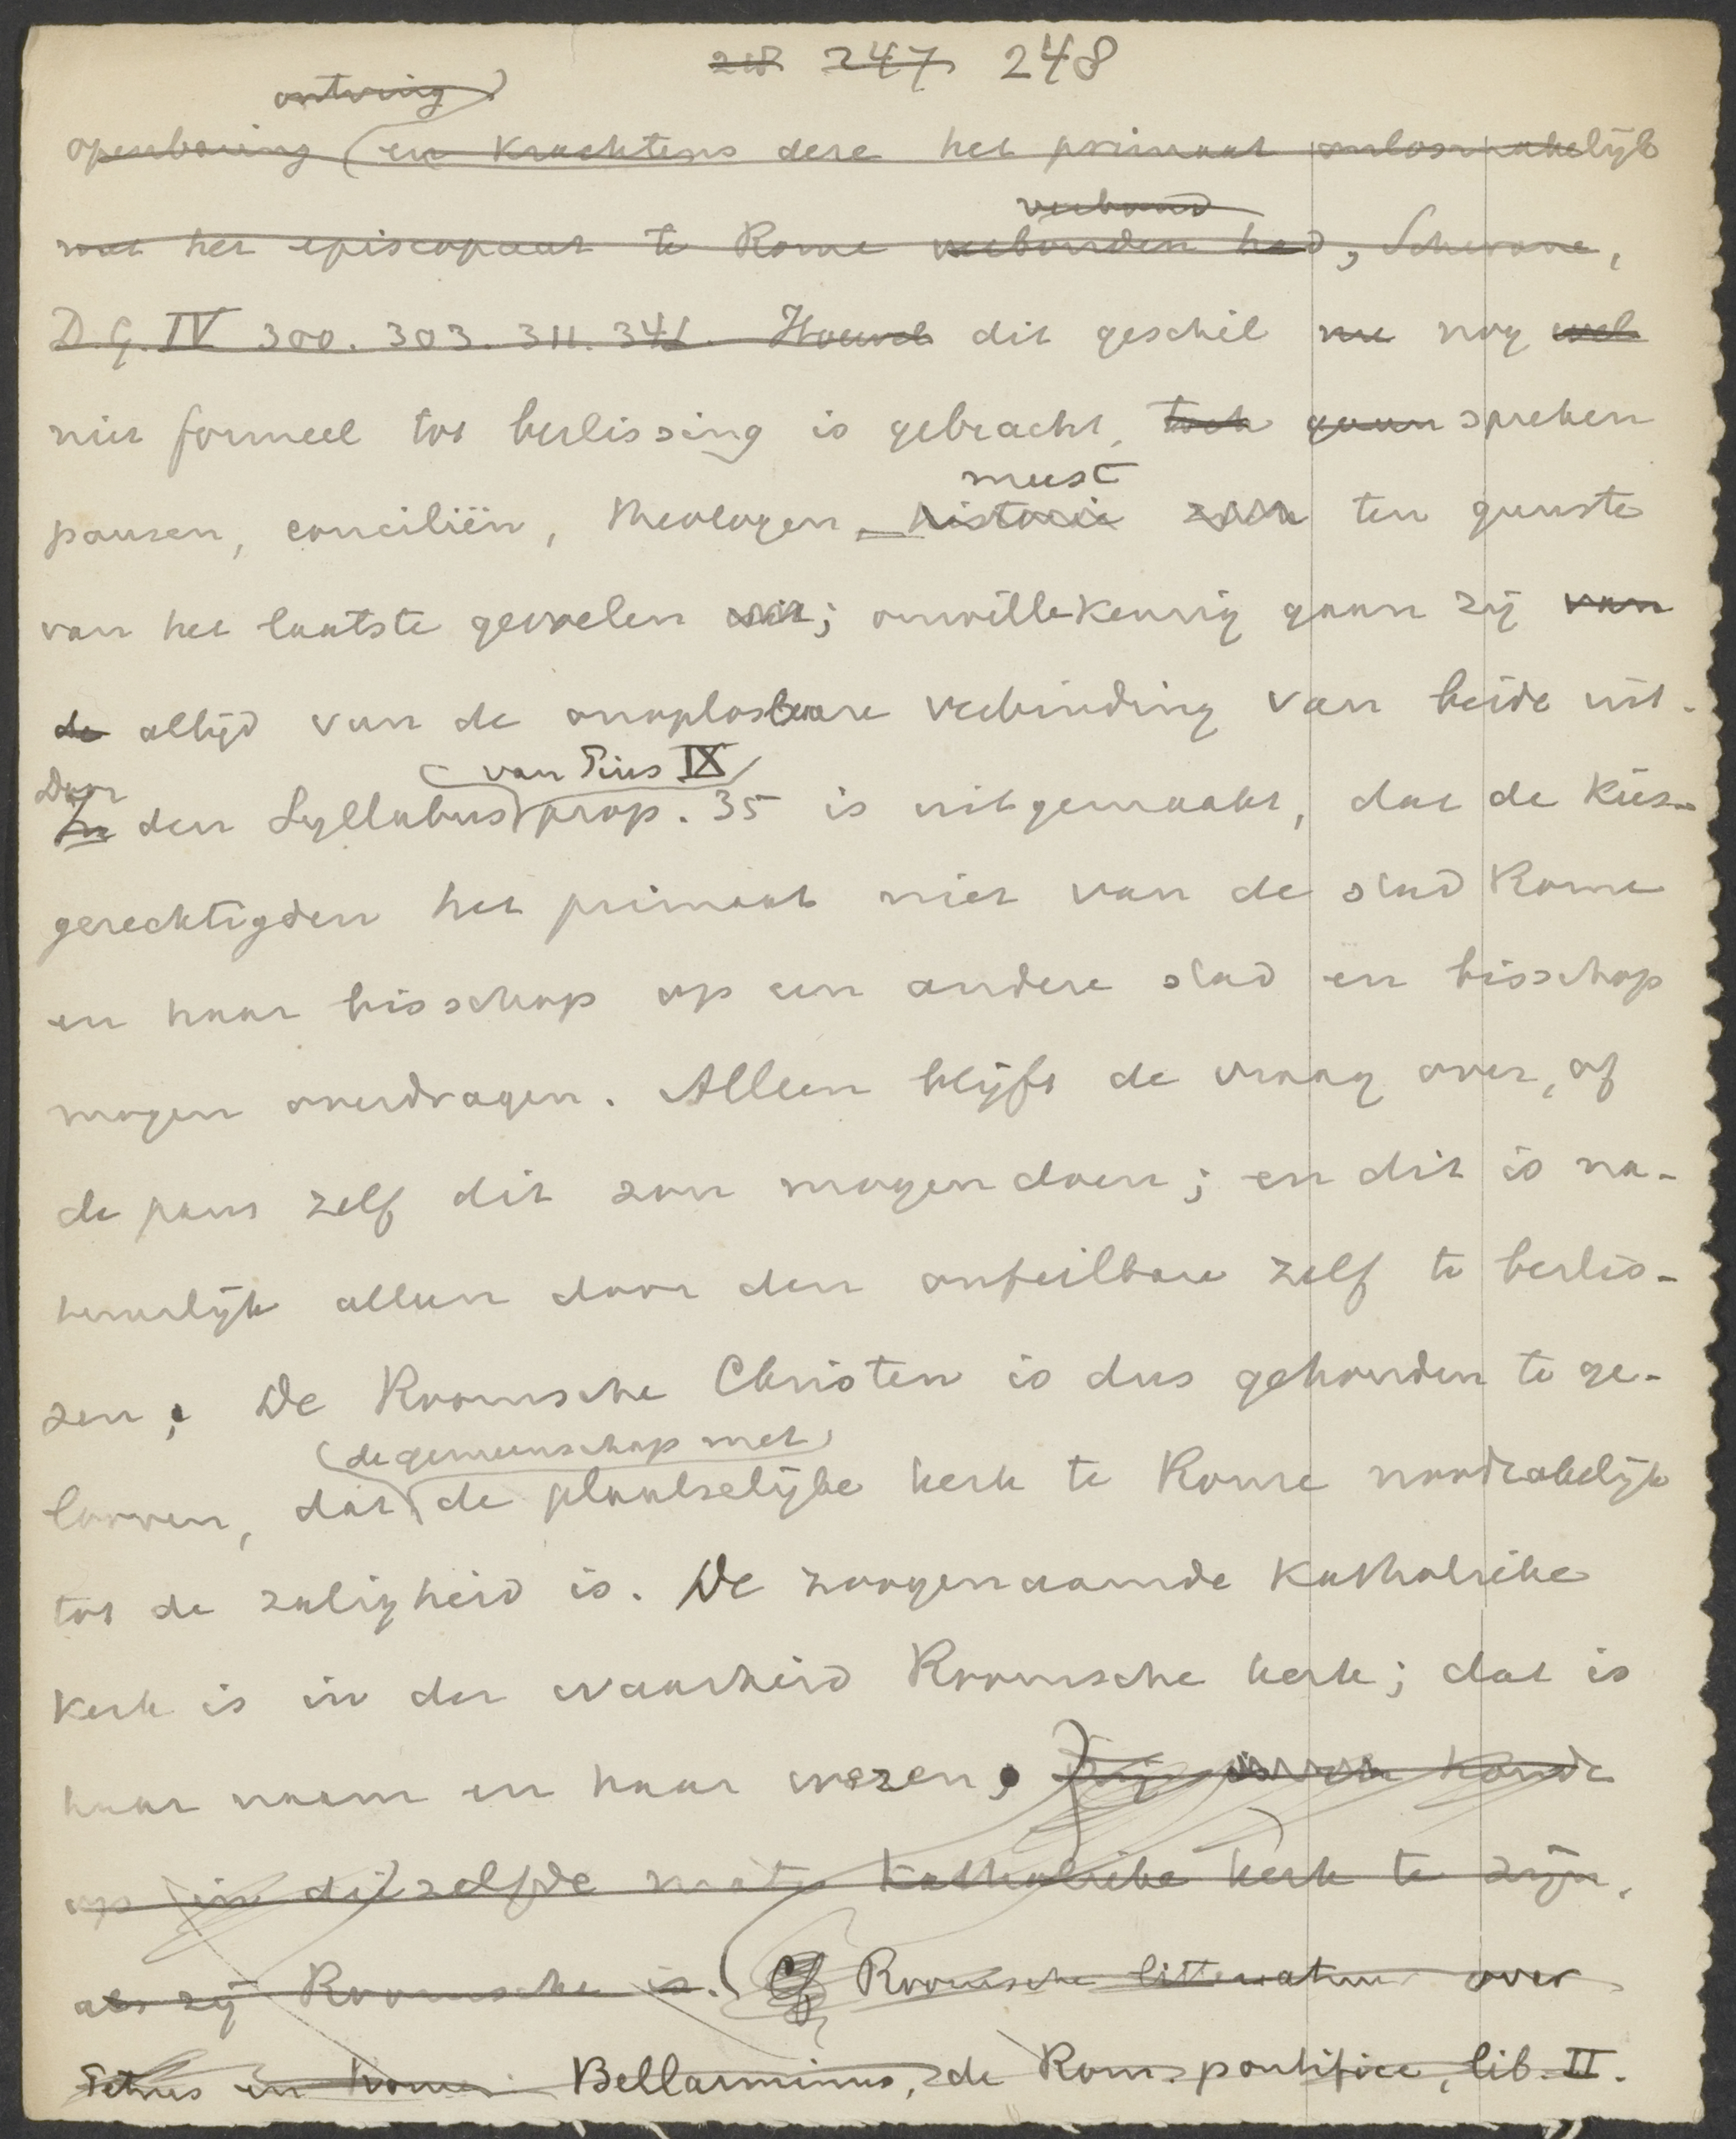 218 247 248
ontving
openbaring (en krachtens deze het primaat onlosmakelijk
verband
met het episcopaat te Rome verbonden had, Schwane,
D.G. IV 300. 303. 311. 341. Hoewel dit geschil nu nog wel
niet formeel tot beslissing is gebracht, toch gaan spreken
meest
pausen, conciliën, theologen historie zich ten gunste
van het laatste gevoelen uit; onwillekeurig gaan zij van
de altijd van de onoplosbare verbinding van beide uit.
van Pius IX
Door
In den Syllabus prop. 35 is uitgemaakt, dat de kies-
gerechtigden het primaat niet van de stad Rome
en haar bisschop op een andere stad en bisschop
mogen overdragen. Alleen blijft de vraag over, of
de paus zelf dit zou mogen doen; en dit is na-
tuurlijk alleen door den onfeilbare zelf te beslis-
sen; De Roomsche Christen is dus gehouden te ge-
de gemeenschap met
looven, dat de plaatselijke kerk te Rome noodzakelijk
tot de zaligheid is. De zoogenaamde Katholieke
Kerk is in der waarheid Roomsche kerk; dat is
haar naam en haar wezen, houdt
op in dezelfde mate katholieke kerk te zijn,
als zij Roomsche is. Cf Roomsche litteratuur over
Petrus en Rome: Bellarminus, de Rom. pontifice, lib. II.